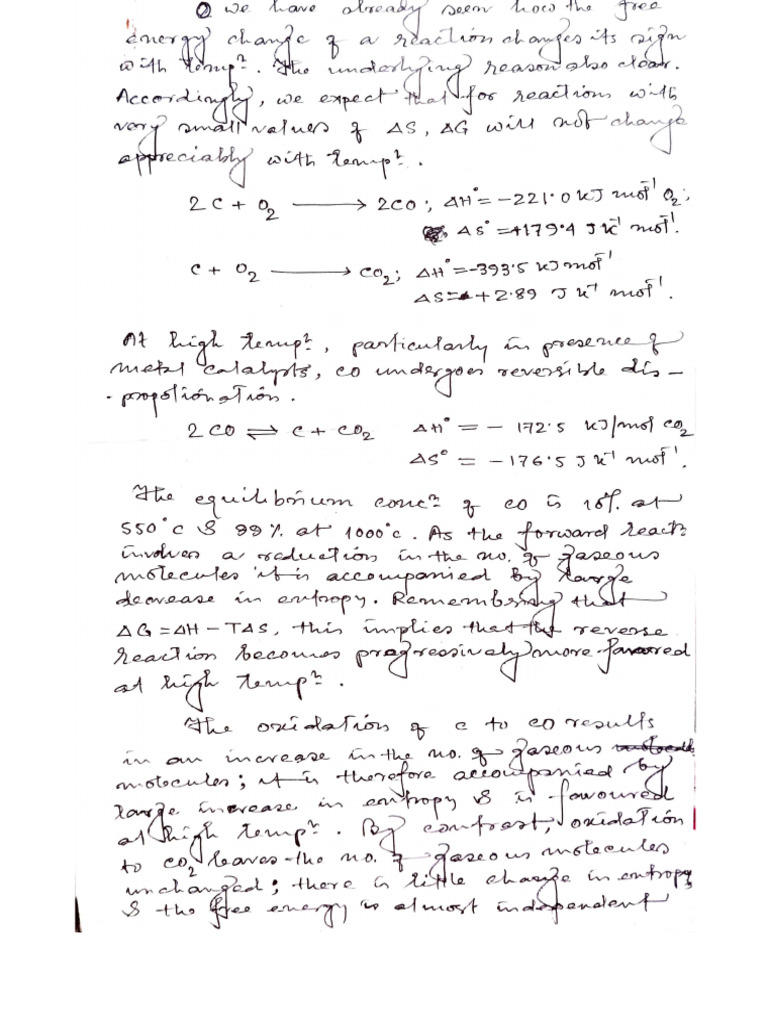 we have already seen how the free
energy change of a reaction changes its sign
with tempr. The underlying reason also clear.
Accordingly, we expect that for reactions with
very small values of ΔS, ΔG will not change
appreciably with tempr.
2C + O₂ ⟶ 2CO; ΔH° = -221.0 KJ mol⁻¹ O₂;
ΔS° = +179.4 J K⁻¹ mol⁻¹.
C + O₂ ⟶ CO₂; ΔH° = -393.5 KJ mol⁻¹
ΔS = +2.89 J K⁻¹ mol⁻¹.
At high tempr, particularly in presence of
metal catalysts, CO undergoes reversible dis-
-propotionation.
2CO ⇌ C + CO₂ ΔH° = - 172.5 KJ/mol CO₂
ΔS° = -176.5 J K⁻¹ mol⁻¹.
The equilibrium concn of CO is 10% at
550°C & 99% at 1000°C. As the forward reactn
involves a reduction in the no. of gaseous
molecules it is accompanied by large
decrease in entropy. Remembering that
ΔG = ΔH - TΔS, this implies that the reverse
reaction becomes progressively more favoured
at high tempr.
The oxidation of C to CO results
in an increase in the no. of gaseous
molecules; it is therefore accompanied by
large increase in entropy & is favoured
at high tempr. By contrast, oxidation
to CO₂ leaves the no. of gaseous molecules
unchanged; there is little change in entropy
& the free energy is almost independent